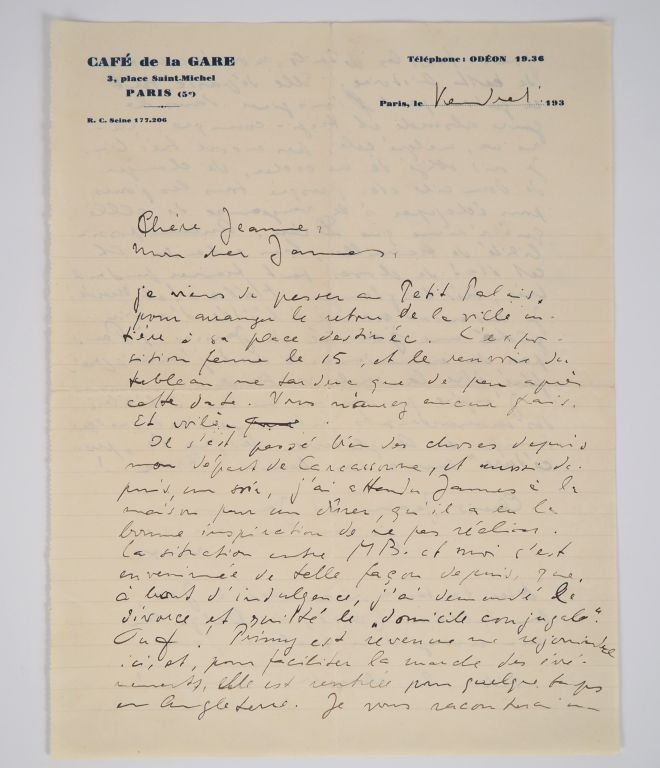 CAFÉ de la GARE
3, place Saint-Michel
PARIS (5e)
R. C. Seine 177.206
Téléphone: ODÉON 19.36
Paris, le Vendredi 193
Chère Jeanne,
Mon cher James,
je viens de passer au Petit Palais,
pour arranger le retour de la ville en-
tière à sa place destinée. L'expo-
sition ferme le 15, et le renvoi du
tableau ne tardera que de peu après
cette date. Vous n'aurez aucun frais.
Et voilà
Il s'est passé bien des choses depuis
mon départ de Carcassonne, et aussi de-
puis, un soir, j'ai attendu James à la
maison pour un dîner, qu'il a eu la
bonne inspiration de ne pas réaliser.
La situation entre MB. et moi s'est
envenimée de telle façon depuis, que,
à bout d'indulgence, j'ai demandé le
divorce et quitté le „domicile conjugale".
Ouf! est revenue me rejoindre
ici, et, pour faciliter la marche des évé-
nements, elle est rentrée pour quelque temps
en Angleterre. Je vous raconterai